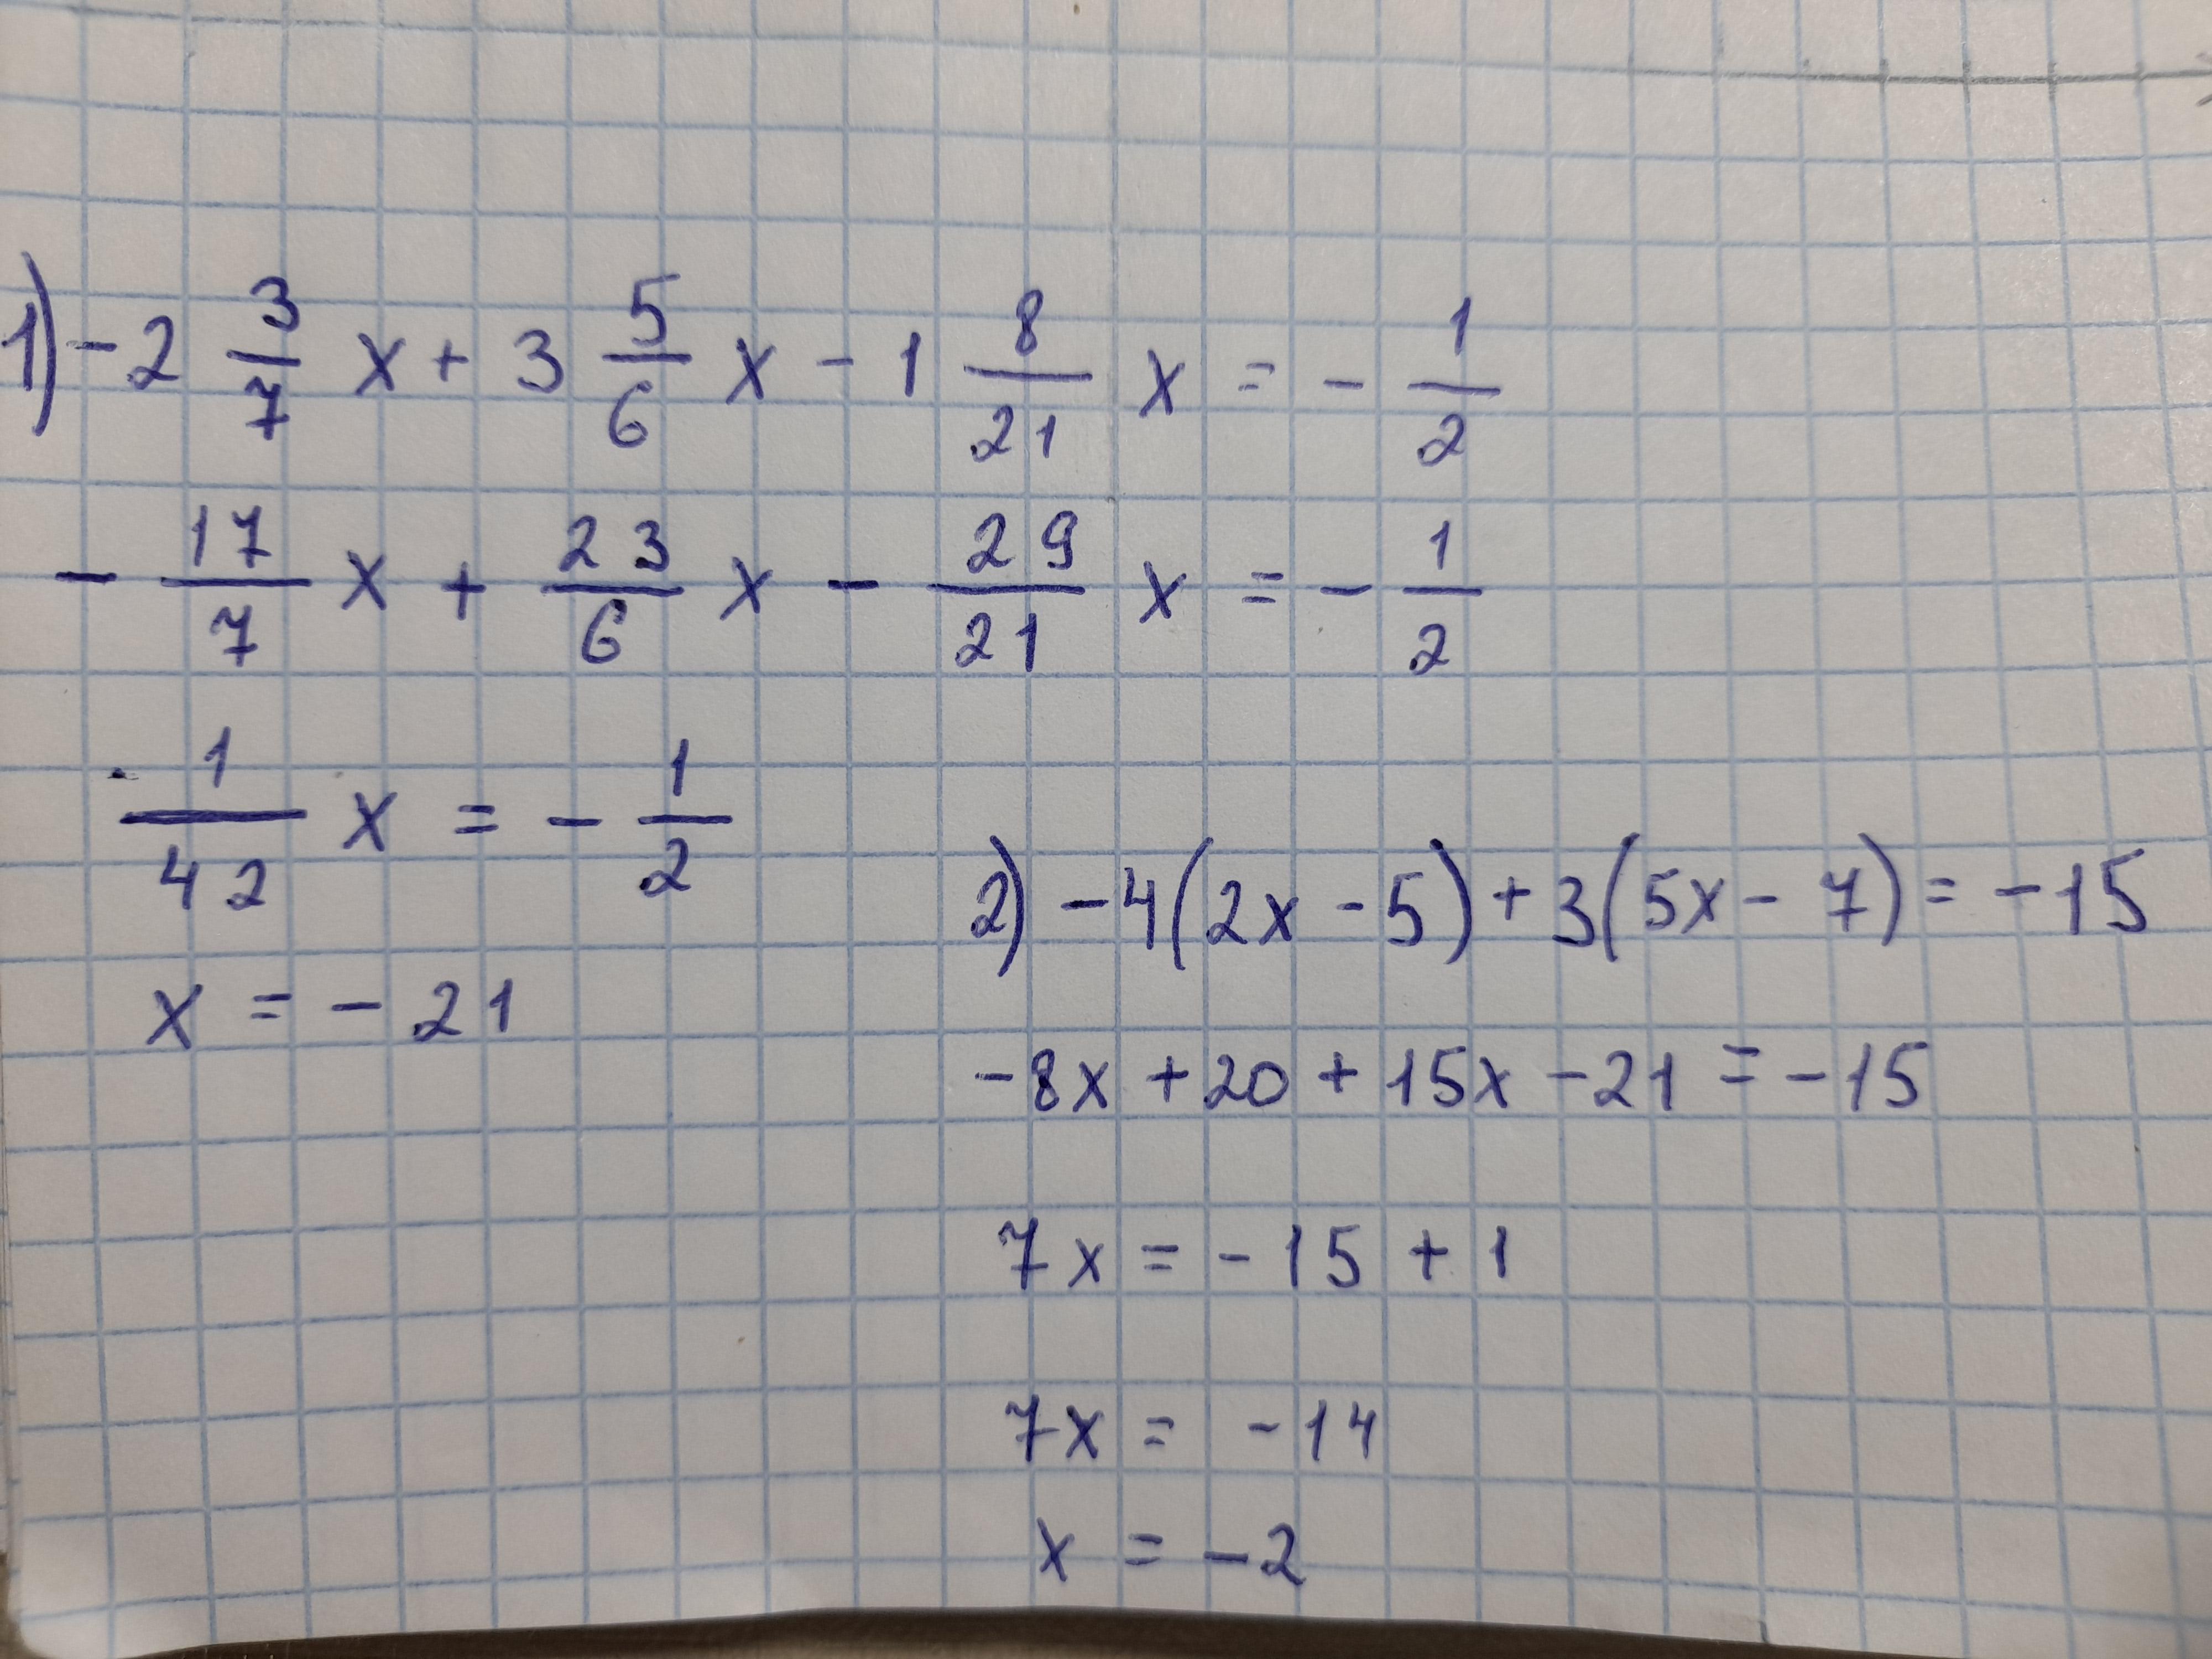 1) - 2 3/7 x + 3 5/6 x - 1 8/21 x = - 1/2
- 17/7 x + 23/6 x - 29/21 x = - 1/2
1/42 x = - 1/2
x = - 21
2) - 4(2x - 5) + 3(5x - 7) = - 15
- 8x + 20 + 15x - 21 = - 15
7x = - 15 + 1
7x = - 14
x = - 2